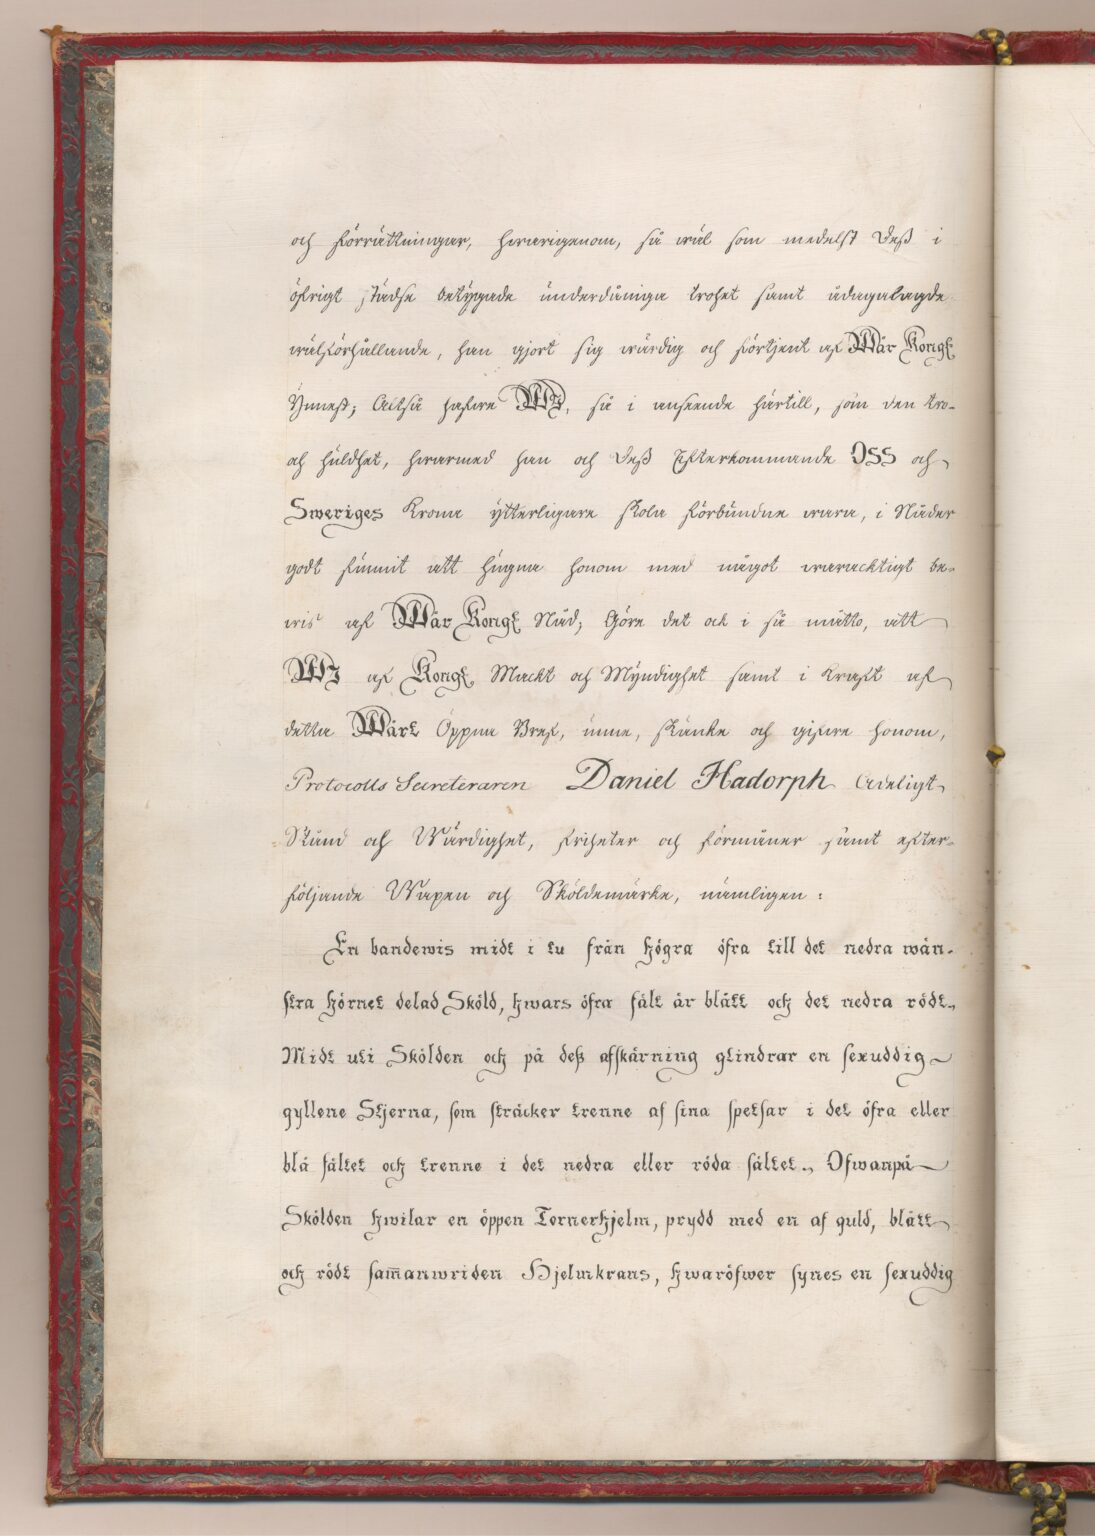 och förrättningar, hwarigenom, så wäl som medelst Deß i
öfrigt städse betygade underdåniga trohet samt ådagalagde
wälförhållande, han gjort sig wärdig och förtjent af Wår Kongl
Ynnest; Altså hafwe WJ, så i anseende härtill, som den tro-
oh huldhet, hwarmed han och Deß Efterkommande OSS och
Sweriges Krona ytterligare skola förbundne wara, i Nåder
godt funnit att hugna honom med något waracktigt be-
wis af Wår Kongl Nåd; Göre det ock i så måtto, att
WJ af Kongl Mackt och Myndighet samt i Kraft af
detta Wårt Öppna Bref, unne, skänke och gifwe honom,
Protocolls Secreteraren Daniel Hadorph Adeligt
Stånd och Wärdighet, friheter och förmåner samt efter-
följande Wapen och Sköldemärke, nämligen:
En bandewis midt i tu från högra öfra till det nedra wän-
stra hörnet delad Sköld, hwars öfra fält är blått och det nedra rödt.
Midt uti Skölden och på deß afskärning glindrar en sexuddig
gyllene Stjerna, som sträcker trenne af sina spetsar i det öfra eller
blå fältet och trenne i det nedra eller röda fältet. Ofwanpå
Skölden hwilar en öppen Tornerhjelm, prydd med en af guld, blått
och rödt sam̅anwriden Hjelmkrans, hwaröfwer synes en sexuddig